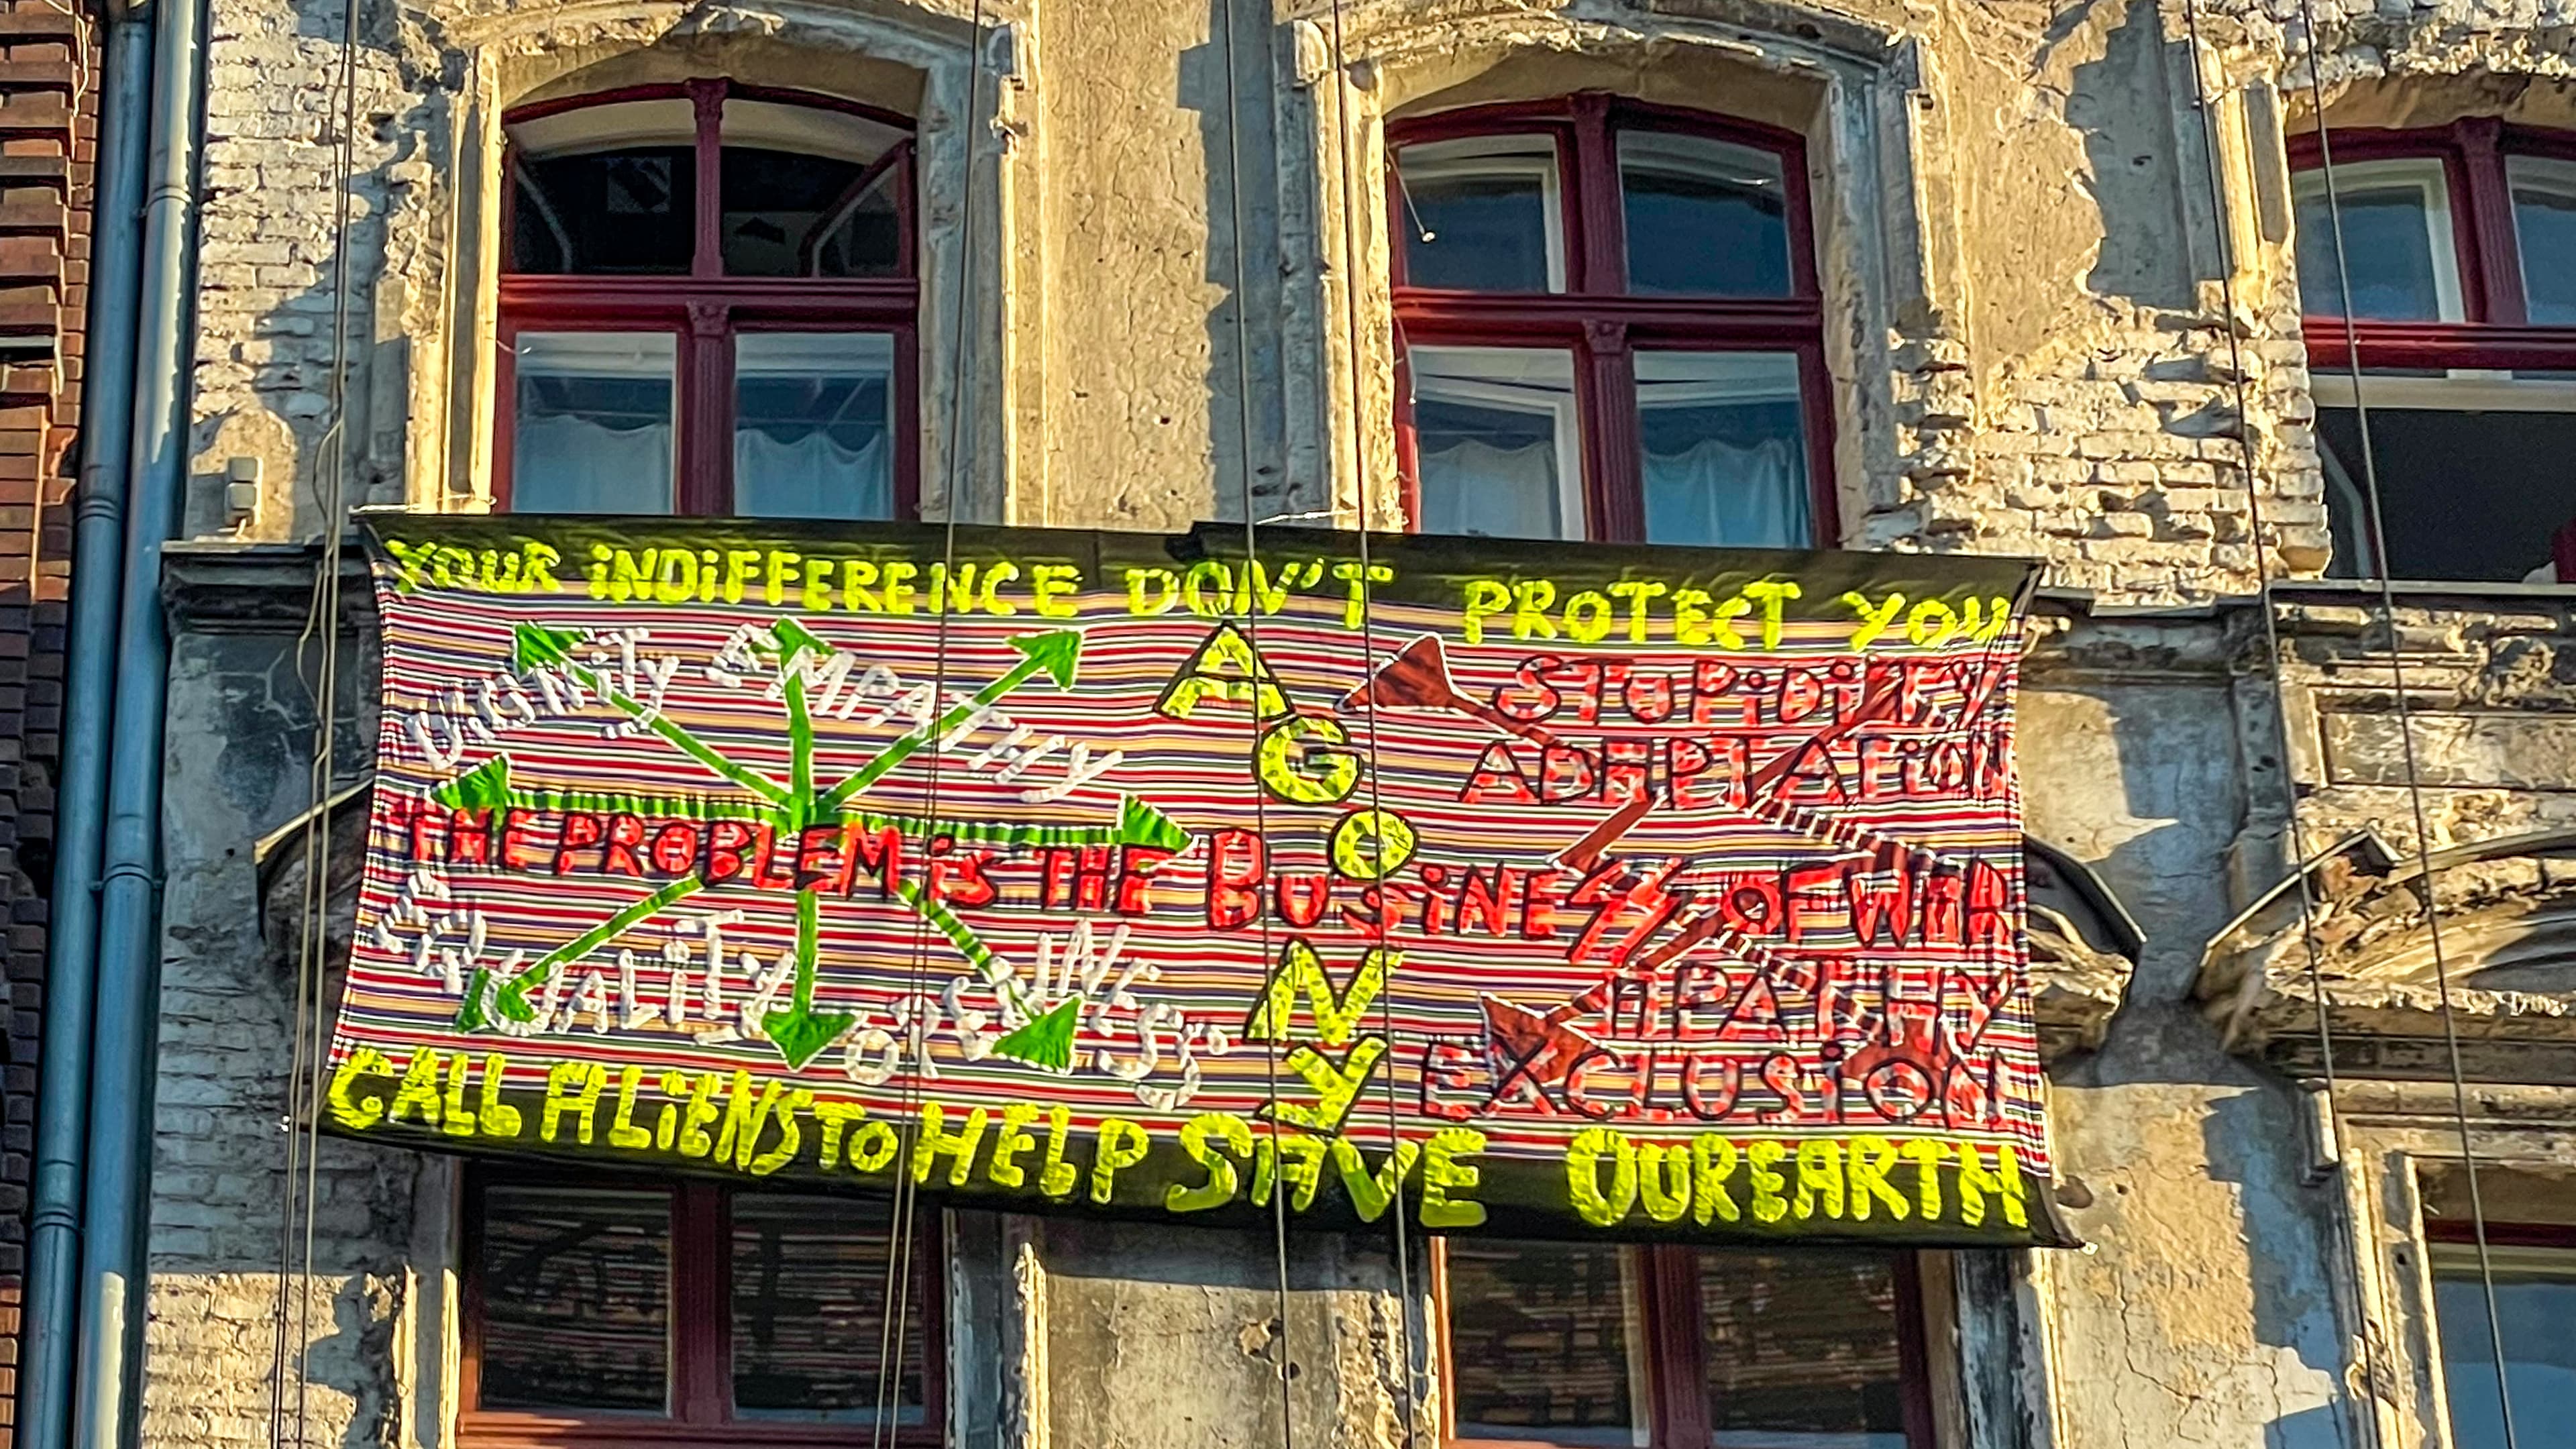 YOUR iNDiFFERENCE DON'T PROTECT YOU
DIGNiTy EMPATHY
AGONY
STUPiDiTY
ADAPTATiON
THE PROBLEM is THE BUSiNESS OF WAR
EQUALiTY OPENNESS
APATHY
EXCLUSiON
CALL ALiENS TO HELP SAVE OUR EARTH